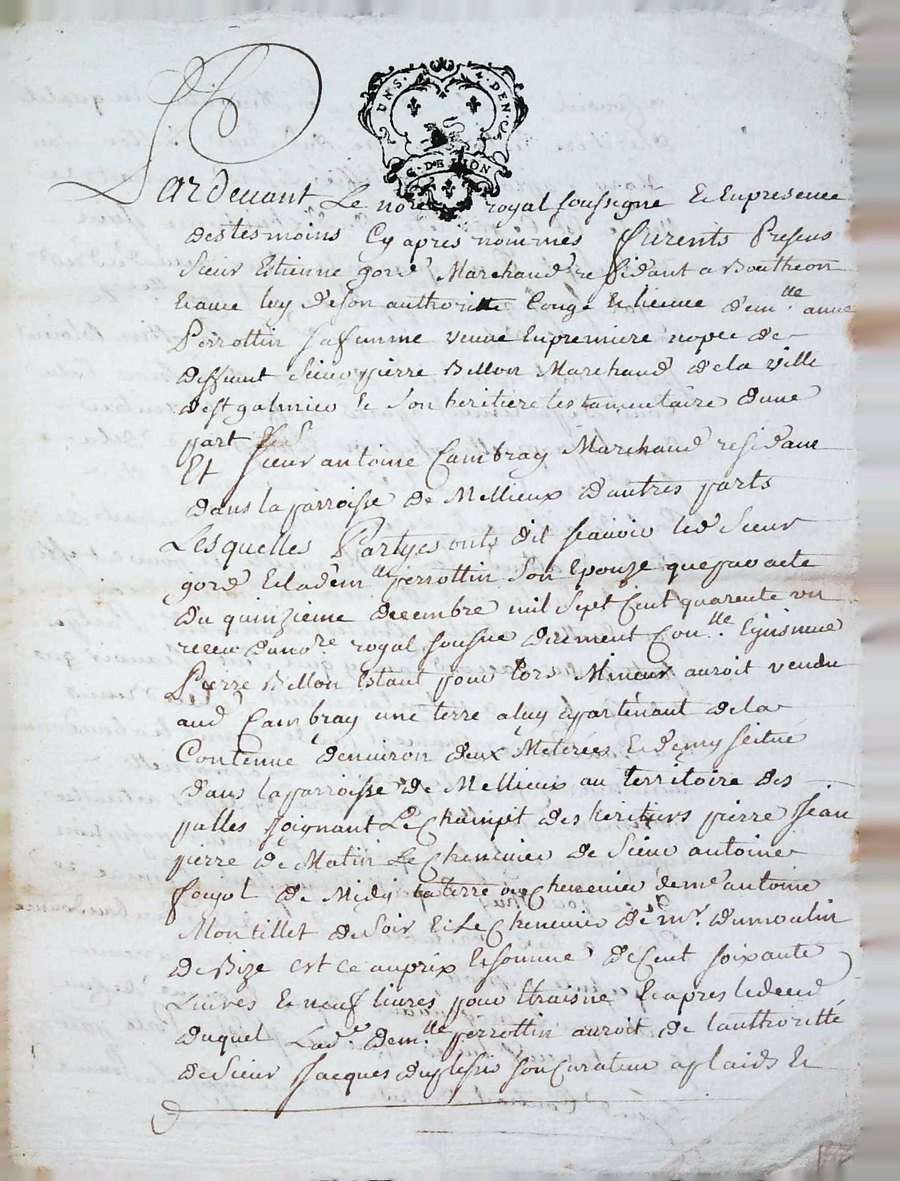 UN S. 4. DEN.
G. DE LION
Pardevant Le no^re royal soussigné Et En presence
des tesmoins Cy apres nommes furents Presens
Sieur Estienne gord Marchand residant a Boutheon
Et avec luy de son authoritte Congé Et licence dem^lle anne
Perrottin sa femme veuve En premiere nopce de
deffunt Sieur pierre Billon Marchand de la ville
de st galmier Et son heritiere testamentaire d'une
part
Et Sieur antoine Cambray Marchand residant
dans la parroisse de Mellieux d'autres parts
Lesquelles Partyes onts dit scavoir led Sieur
gord Et la dem^lle perrottin son Epouze que par acte
du quinzieme decembre mil Sept Cent quarente un
receu da no^re royal sousne duement Con^llé Ejnsinué
Pierre Billon Estant pour lors Mineur auroit vendu
aud Cambray une terre a luy apartenant de la
Contenue d'environ deux Meterées Et demy scitué
dans la parroisse de Mellieux au territoire des
palles joignant Le Champt des heritiers pierre Jean
pierre de Matin Le Chenevier de Sieur antoine
soujol de Midy la terre ou Chenevier de me antoine
Montillet de Soir Et Le Chenevier de Mr. dumoulin
de Bize est ce au prix Et somme de Cent soixante
Livres Et neuf livres pour Etraine Et apres le deced
duquel Lad. dem^lle perrottin auroit de l'authoritté
de Sieur Jacques duplessis son Curateur a plaids Et